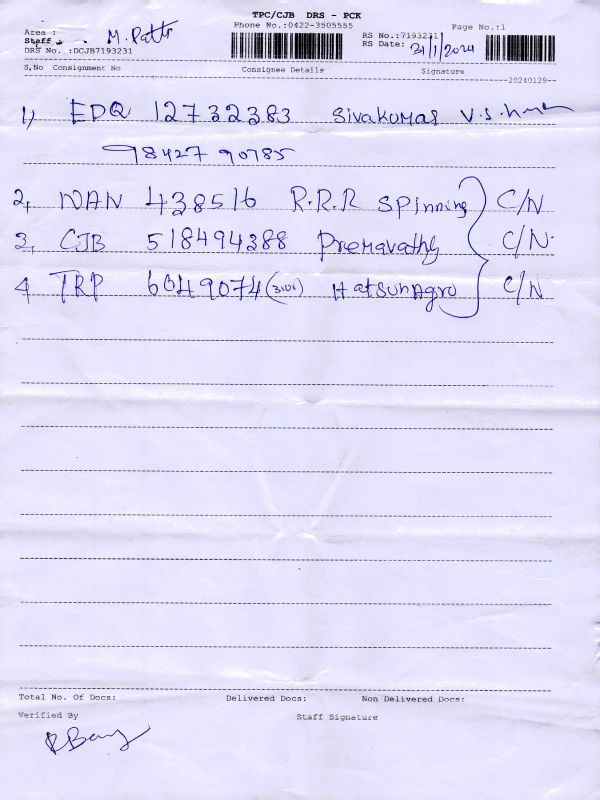 TPC/CJB DRS - PCK
Phone No.:0422-3505555
Page No.:1
Area :
M. Patti
Staff :
RS No.:7193231
DRS No. :DCJB7193231
RS Date: 31/1/2024
S.No Consignment No Consignee Details Signature
20240129
1) EDQ 12732383 Sivakumar V.S.
98427 90785
2, NAN 438516 R.R.R Spinning C/N
3, CJB 518494388 Premavathy C/N
4 TRP 6049074 (3101) Hatsun Agro C/N
Total No. Of Docs: Delivered Docs: Non Delivered Docs:
Verified By Staff Signature